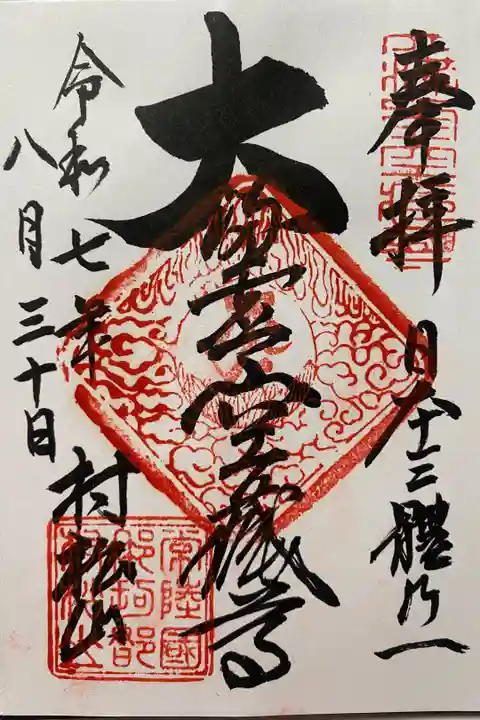 奉拝
日本三體乃一
大満虚空藏尊
令和七年
八月三十日
村松山
常陸國
那珂郡
村松山